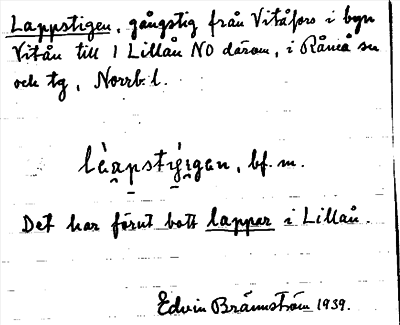 Lappstigen, gångstig från Vitåfors i byn
Vitån till 1 Lillån NO därom, i Råneå sn
och tg, Norrb. l.
bf. m.
Det har förut bott lappar i Lillån.
Edvin Brännström 1939.